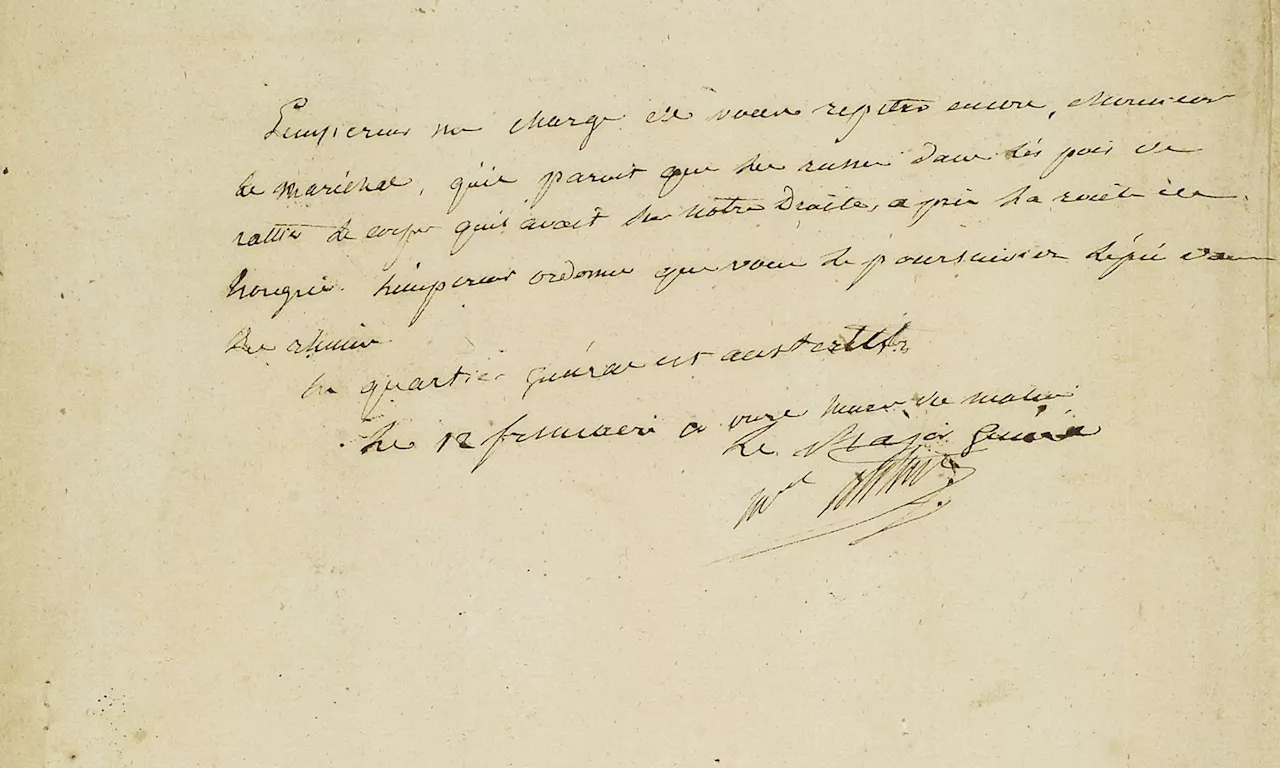 L'empereur me charge de vous répéter encore, Monsieur
le maréchal, qu'il paroit que les russes dans
rallier le corps quil avait sur notre Droite, a pris la route de
hongrie. L'empereur ordonne que vous le poursuiviez l'épée dans
les reins
Au quartier général est austerlitz
Le 12 frimaire a onze heures du matin
Le Major Général
Mal